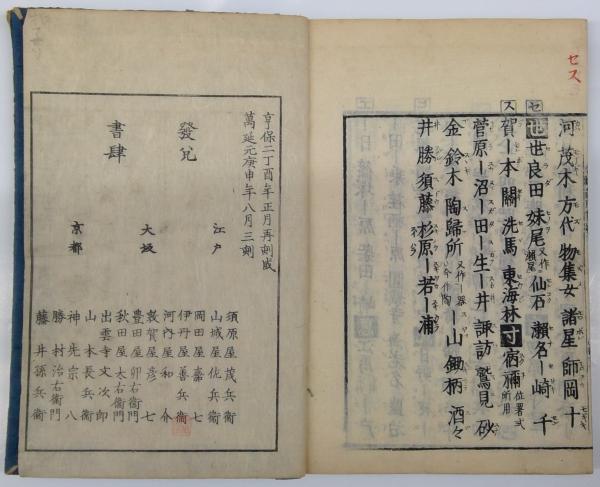 セス
河 茂木 方代 物集女 諸星 師岡 十
セ 世 世良田 妹尾 又作瀬尾 仙石 瀬名 ー崎 千
ス 賀 ー本 關 洗馬 東海林 寸 宿禰 位署式所用
菅原 ー沼 ー田 ー生 ー井 諏訪 鷲見 砂
金 鈴木 陶 歸所 ー山 鋤柄 酒々
井 勝 須藤 杉原 ー若 ー浦
享保二丁酉年正月再刻成
萬延元庚申年八月三刻
發兌
書肆
江戸
大坂
京都
須原屋茂兵衞
山城屋佐兵衞
岡田屋嘉七
伊丹屋善兵衞
河内屋和介
敦賀屋彦七
豊田屋卯右衞門
秋田屋太右衞門
出雲寺文次郎
山本長兵衞
神先宗八
勝村治右衞門
藤井孫兵衞